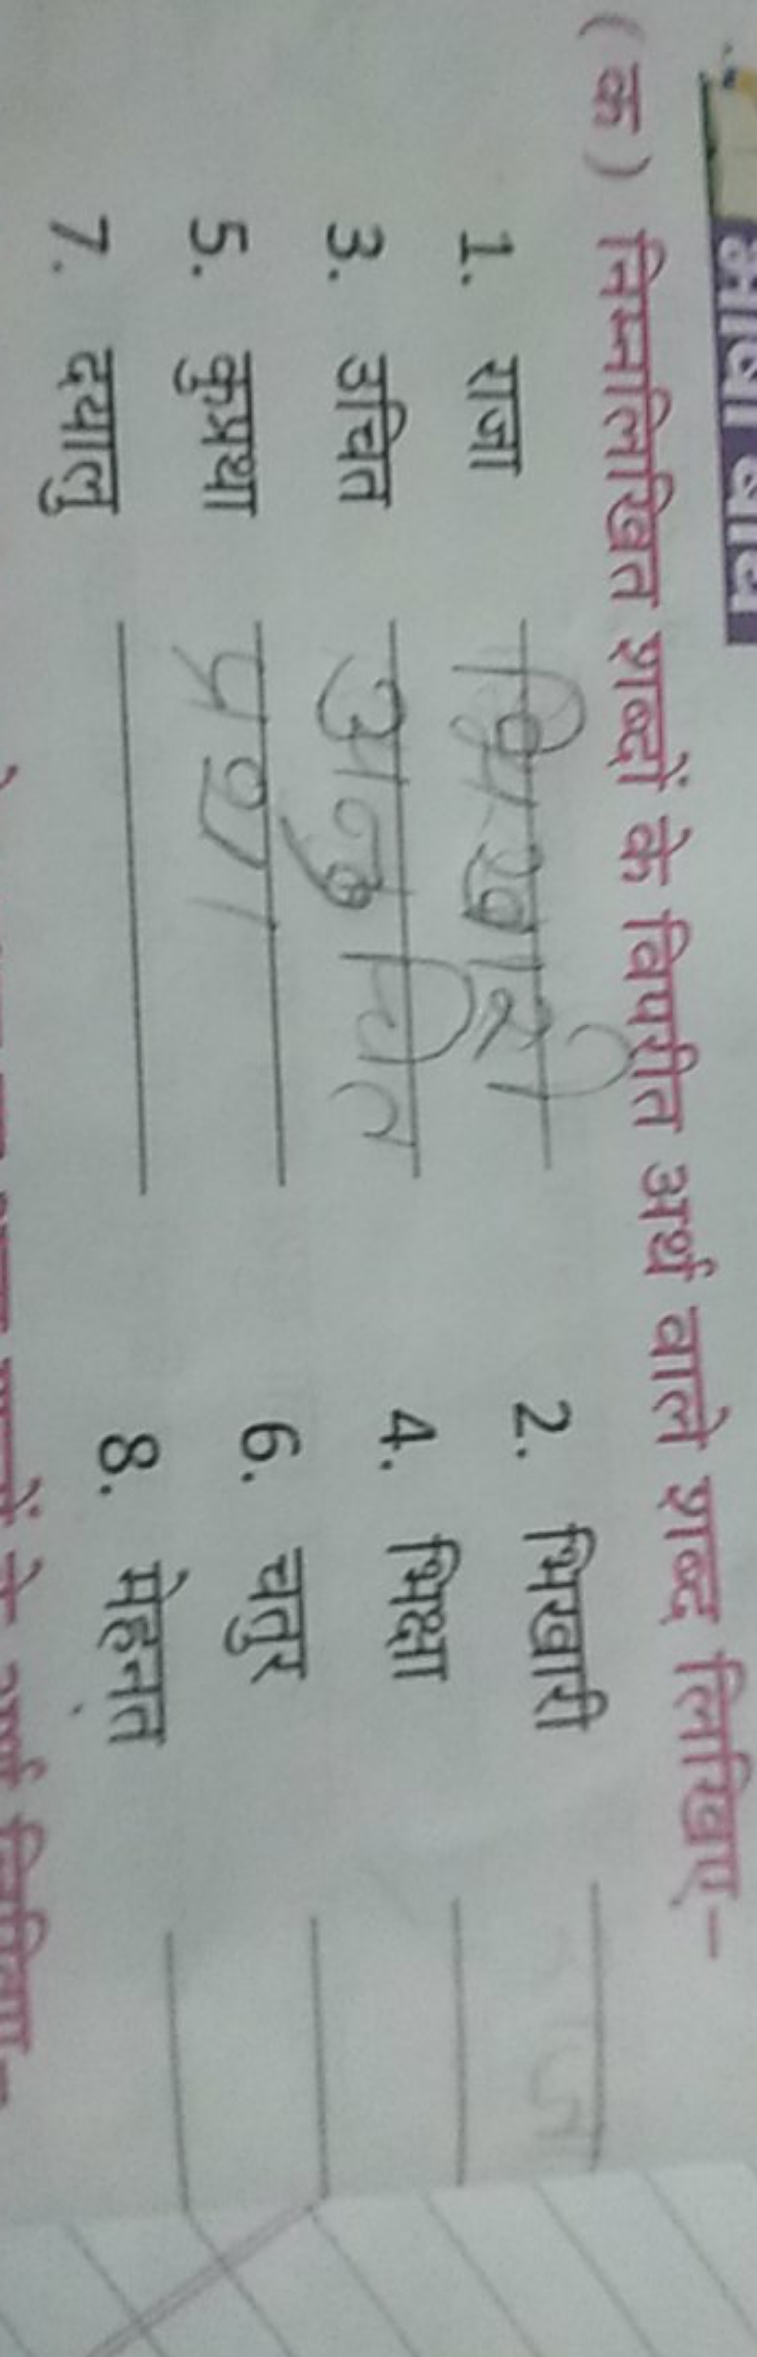 भाषा बोध
(क) निम्नलिखित शब्दों के विपरीत अर्थ वाले शब्द लिखिए-
1. राजा भिखारी 2. भिखारी
3. उचित अनुचित 4. भिक्षा
5. कुप्रथा प्रथा 6. चतुर
7. दयालु 8. मेहनत